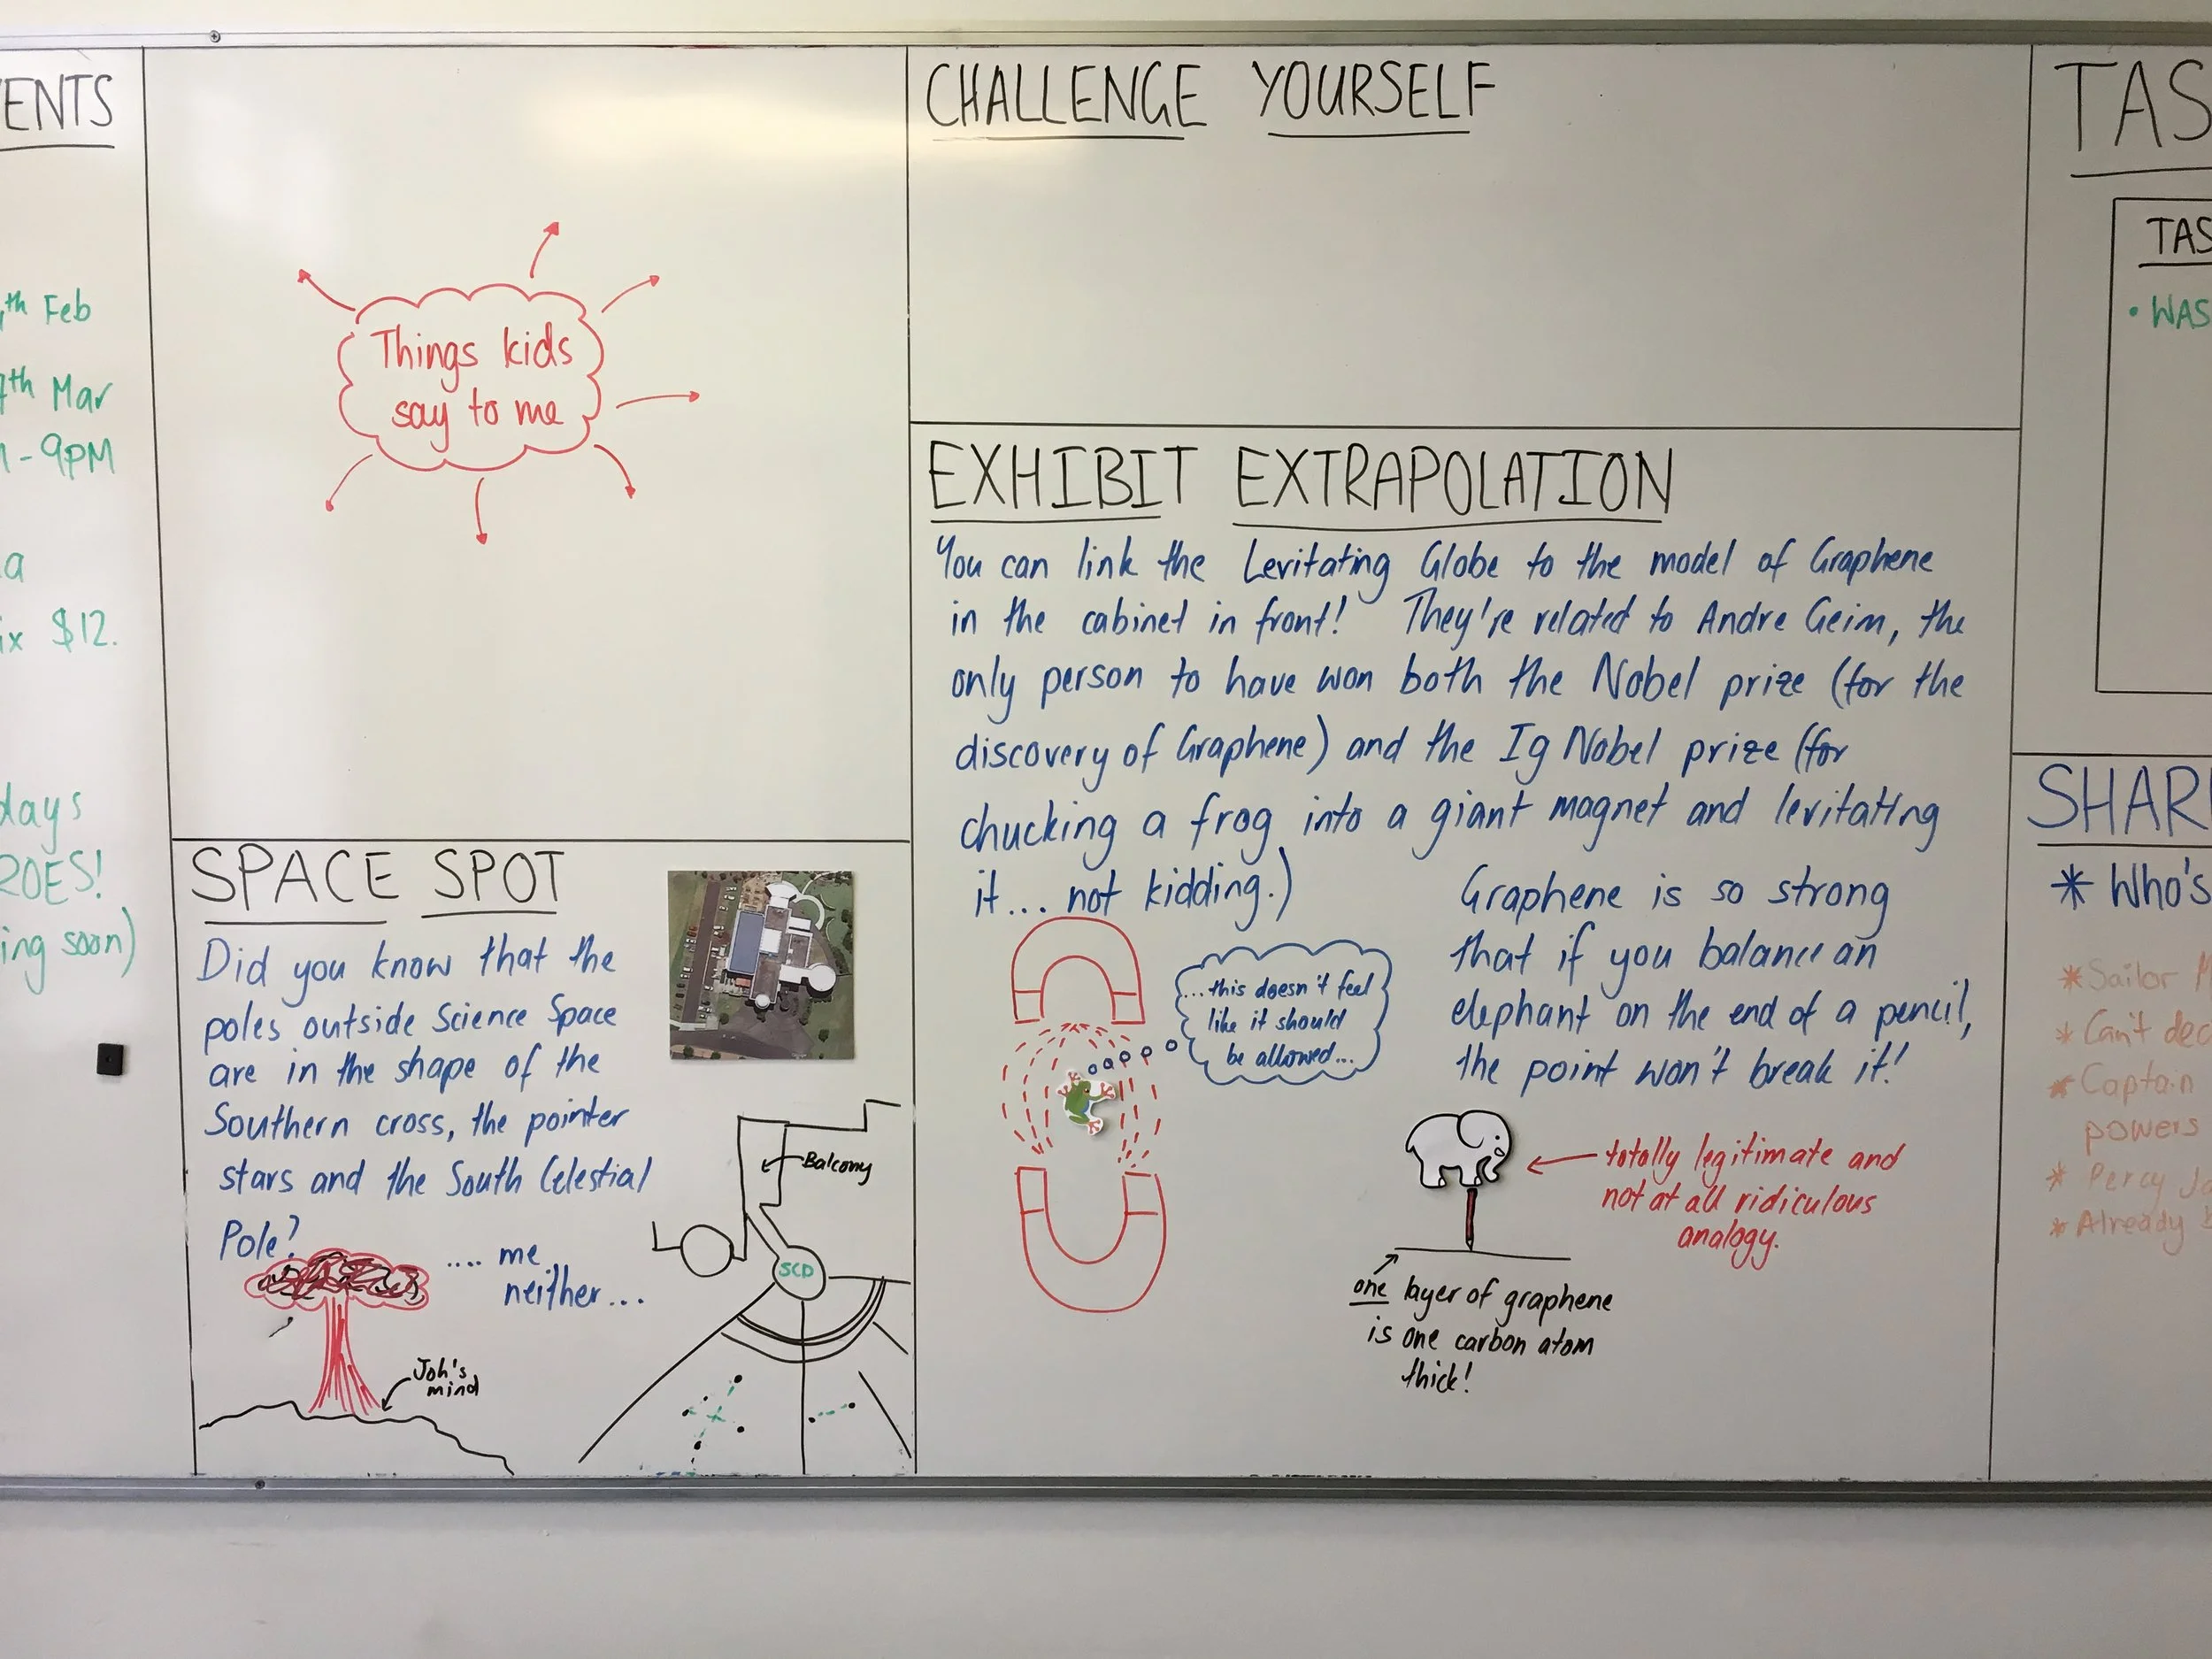 ENTS
th Feb
7th Mar
- 9PM
a
ix $12.
days
ROES!
ing soon)
Things kids
say to me
SPACE SPOT
Did you know that the
poles outside Science Space
are in the shape of the
Southern cross, the pointer
stars and the South Celestial
Pole?
.... me
neither...
Joh's
mind
Balcony
SCD
CHALLENGE YOURSELF
EXHIBIT EXTRAPOLATION
You can link the Levitating Globe to the model of Graphene
in the cabinet in front! They're related to Andre Geim, the
only person to have won both the Nobel prize (for the
discovery of Graphene) and the Ig Nobel prize (for
chucking a frog into a giant magnet and levitating
it... not kidding.)
...this doesn't feel
like it should
be allowed...
Graphene is so strong
that if you balance an
elephant on the end of a pencil,
the point won't break it!
totally legitimate and
not at all ridiculous
analogy.
one layer of graphene
is one carbon atom
thick!
TAS
TAS
• WAS
SHAR
* Who's
* Sailor M
* Can't dec
* Captain
powers
* Percy Ja
* Already